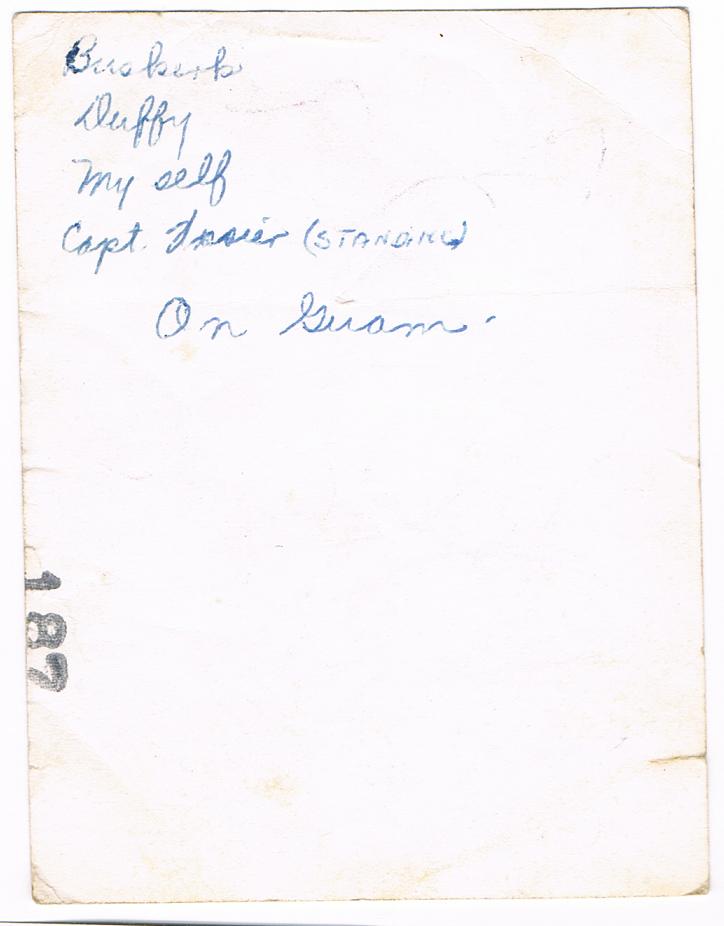 Buskerk
Duffy
My self
Capt. (STANDING)
On Guam.
187